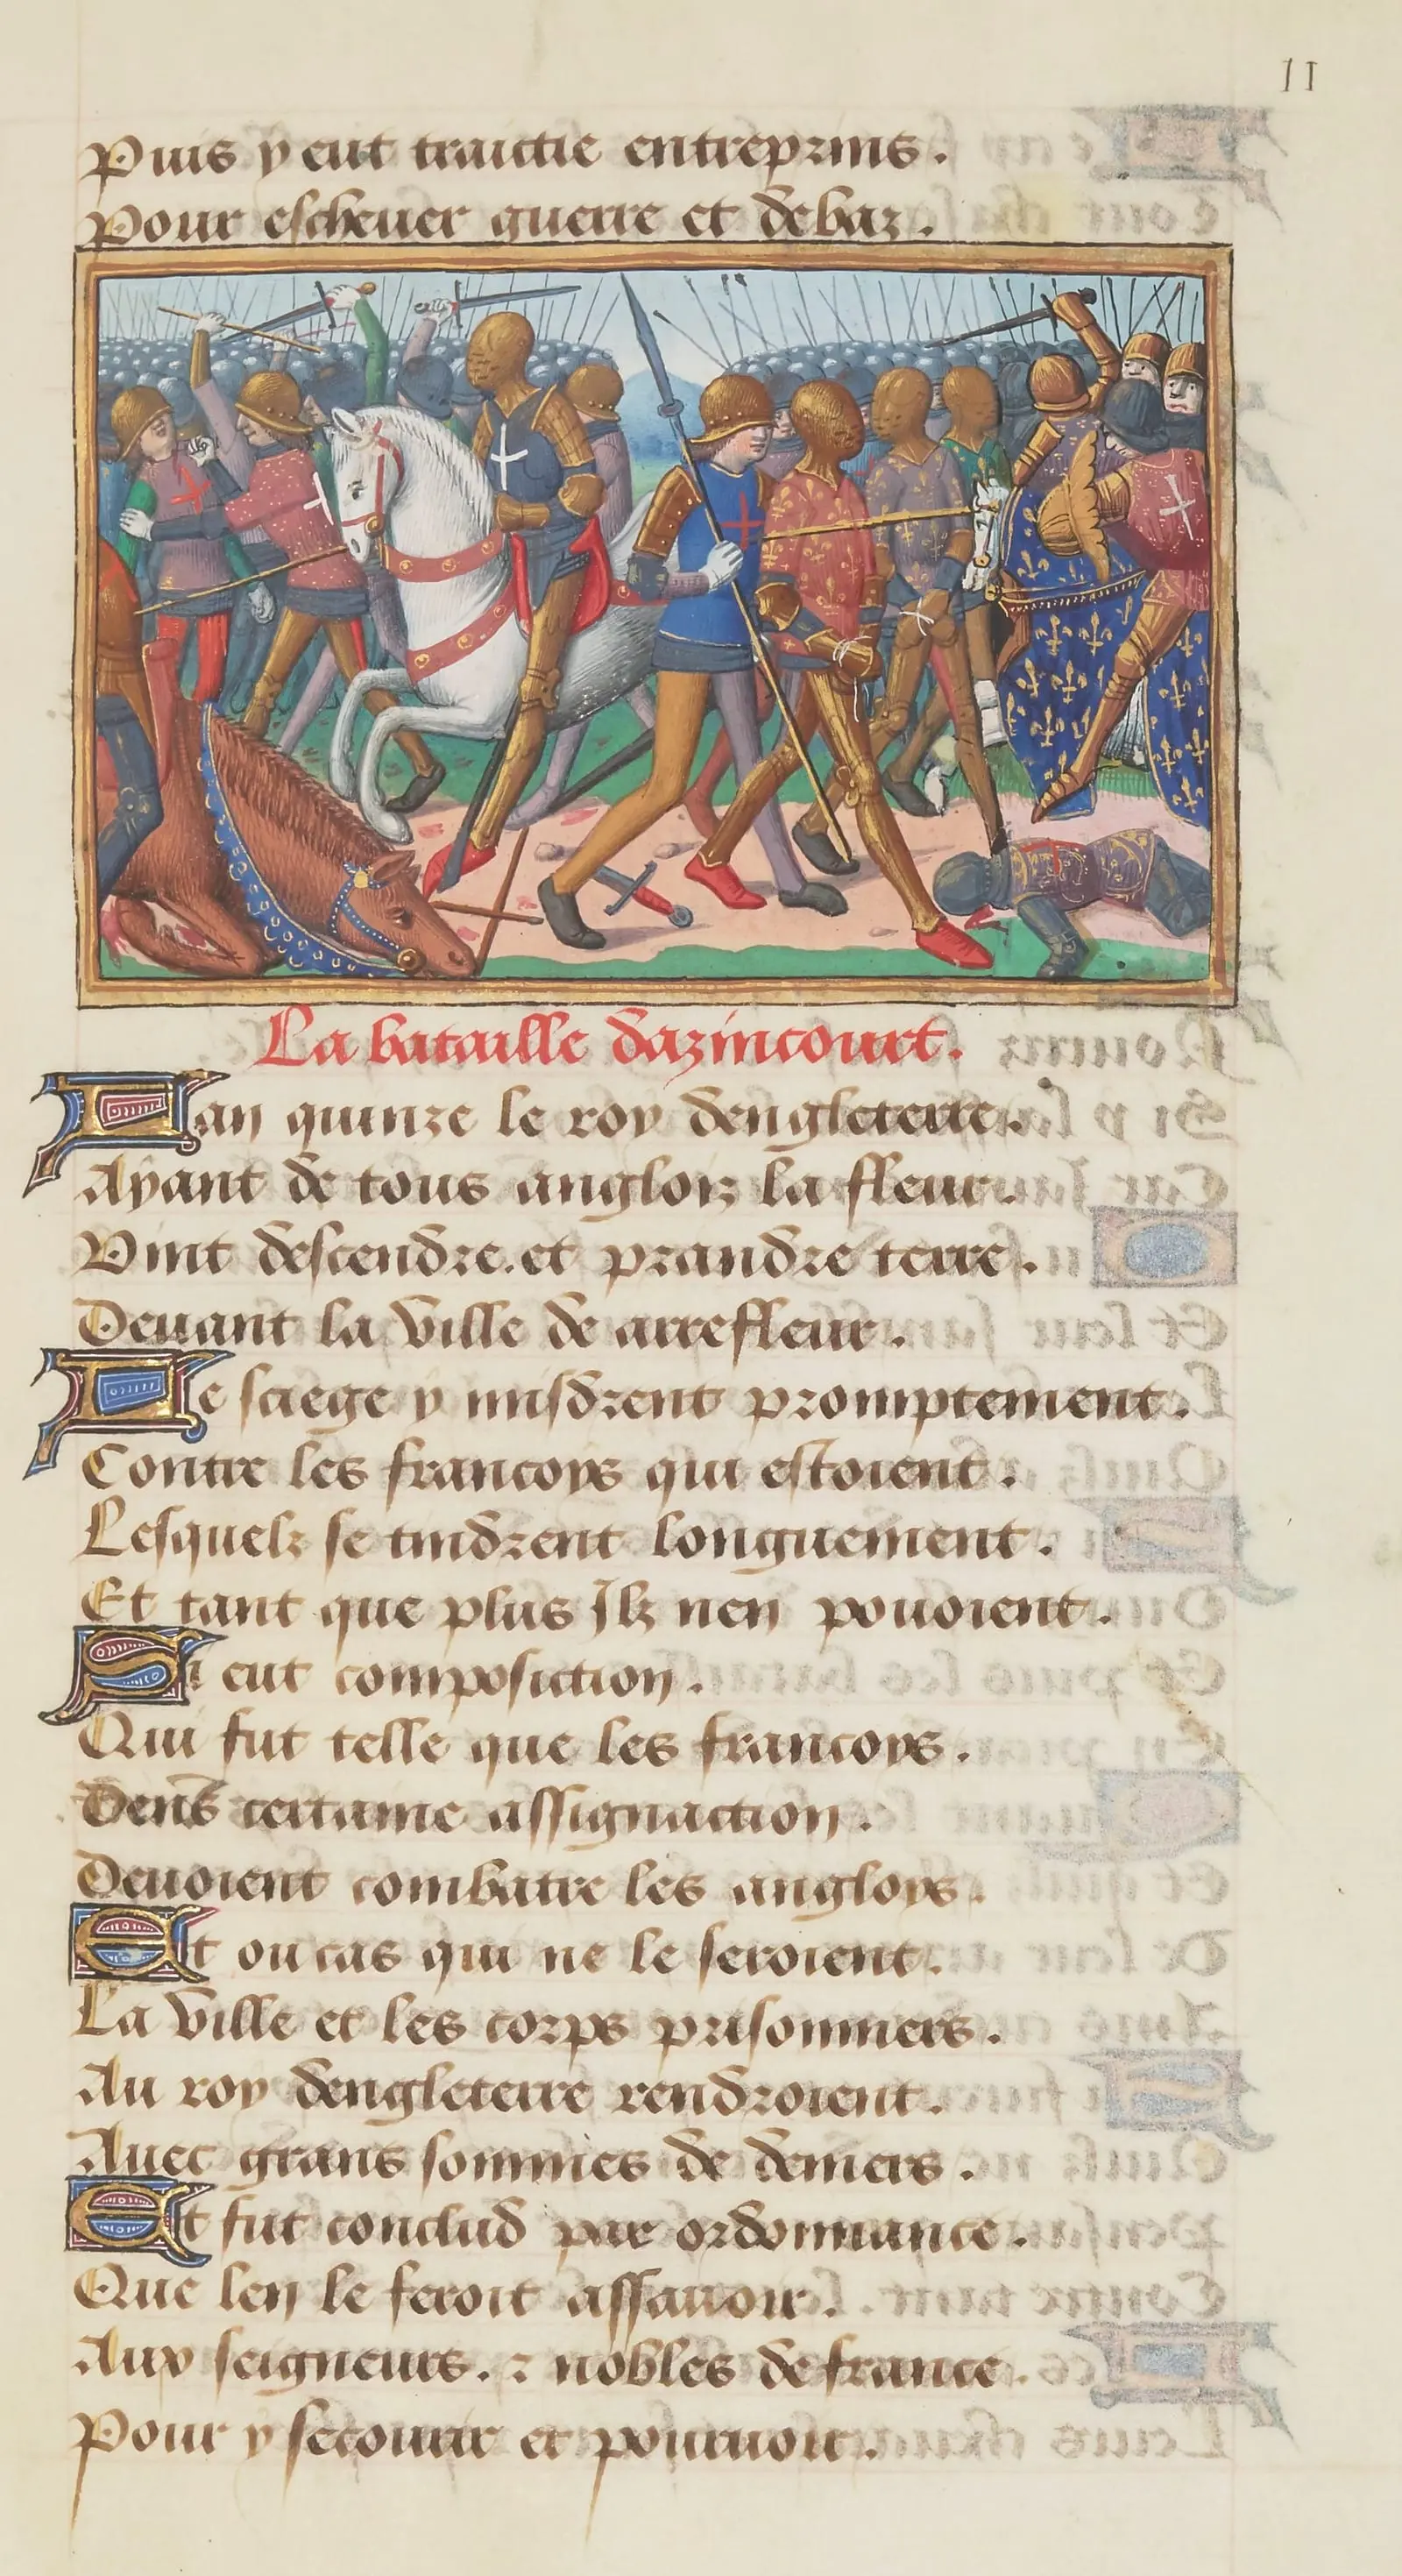 11
Puis y eut traictie entreprins.
Pour escheuer guerre et debaz.
La bataille dazincourt.
Lan quinze le roy dengleterre.
Ayant de tous anglois la fleur.
Vint descendre. et prandre terre.
Deuant la ville de arrefleur.
Le sciege y misdrent promptement.
Contre les francoys qui estoient.
Lesquelz se tindrent longuement.
Et tant que plus Ilz nen pouoient.
Si eut composiction.
Qui fut telle que les francoys.
Dens certaine assignaction.
Deuoient combatre les angloys.
Et ou cas qui ne le feroient.
La ville et les corps prisonniers.
Au roy dengleterre rendroient.
Auec grans sommes de deniers.
Et fut conclud par ordonnance.
Que len le feroit assauoir.
Aux seigneurs. et nobles de france.
Pour y secourir et pouruoir.